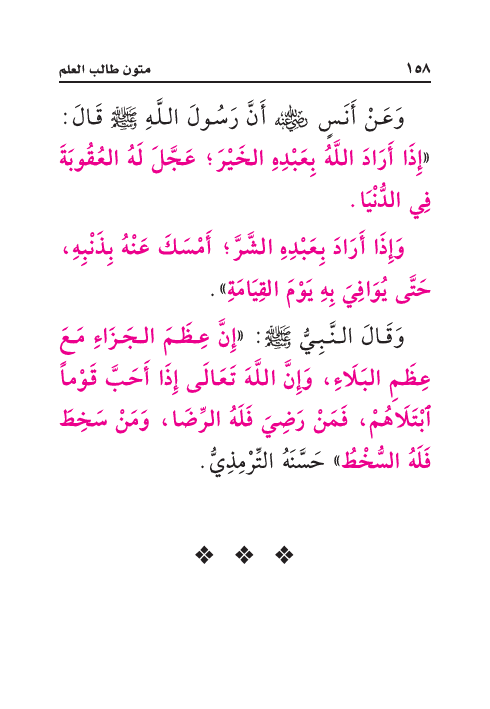 ١٥٨ متون طالب العلم
وَعَنْ أَنَسٍ رضي الله عنه أَنَّ رَسُولَ اللَّهِ ﷺ قَالَ:
«إِذَا أَرَادَ اللَّهُ بِعَبْدِهِ الخَيْرَ؛ عَجَّلَ لَهُ العُقُوبَةَ
فِي الدُّنْيَا.
وَإِذَا أَرَادَ بِعَبْدِهِ الشَّرَّ؛ أَمْسَكَ عَنْهُ بِذَنْبِهِ،
حَتَّى يُوَافِيَ بِهِ يَوْمَ القِيَامَةِ».
وَقَالَ النَّبِيُّ ﷺ: «إِنَّ عِظَمَ الجَزَاءِ مَعَ
عِظَمِ البَلَاءِ، وَإِنَّ اللَّهَ تَعَالَى إِذَا أَحَبَّ قَوْماً
ٱبْتَلَاهُمْ، فَمَنْ رَضِيَ فَلَهُ الرِّضَا، وَمَنْ سَخِطَ
فَلَهُ السُّخْطُ» حَسَّنَهُ التِّرْمِذِيُّ.